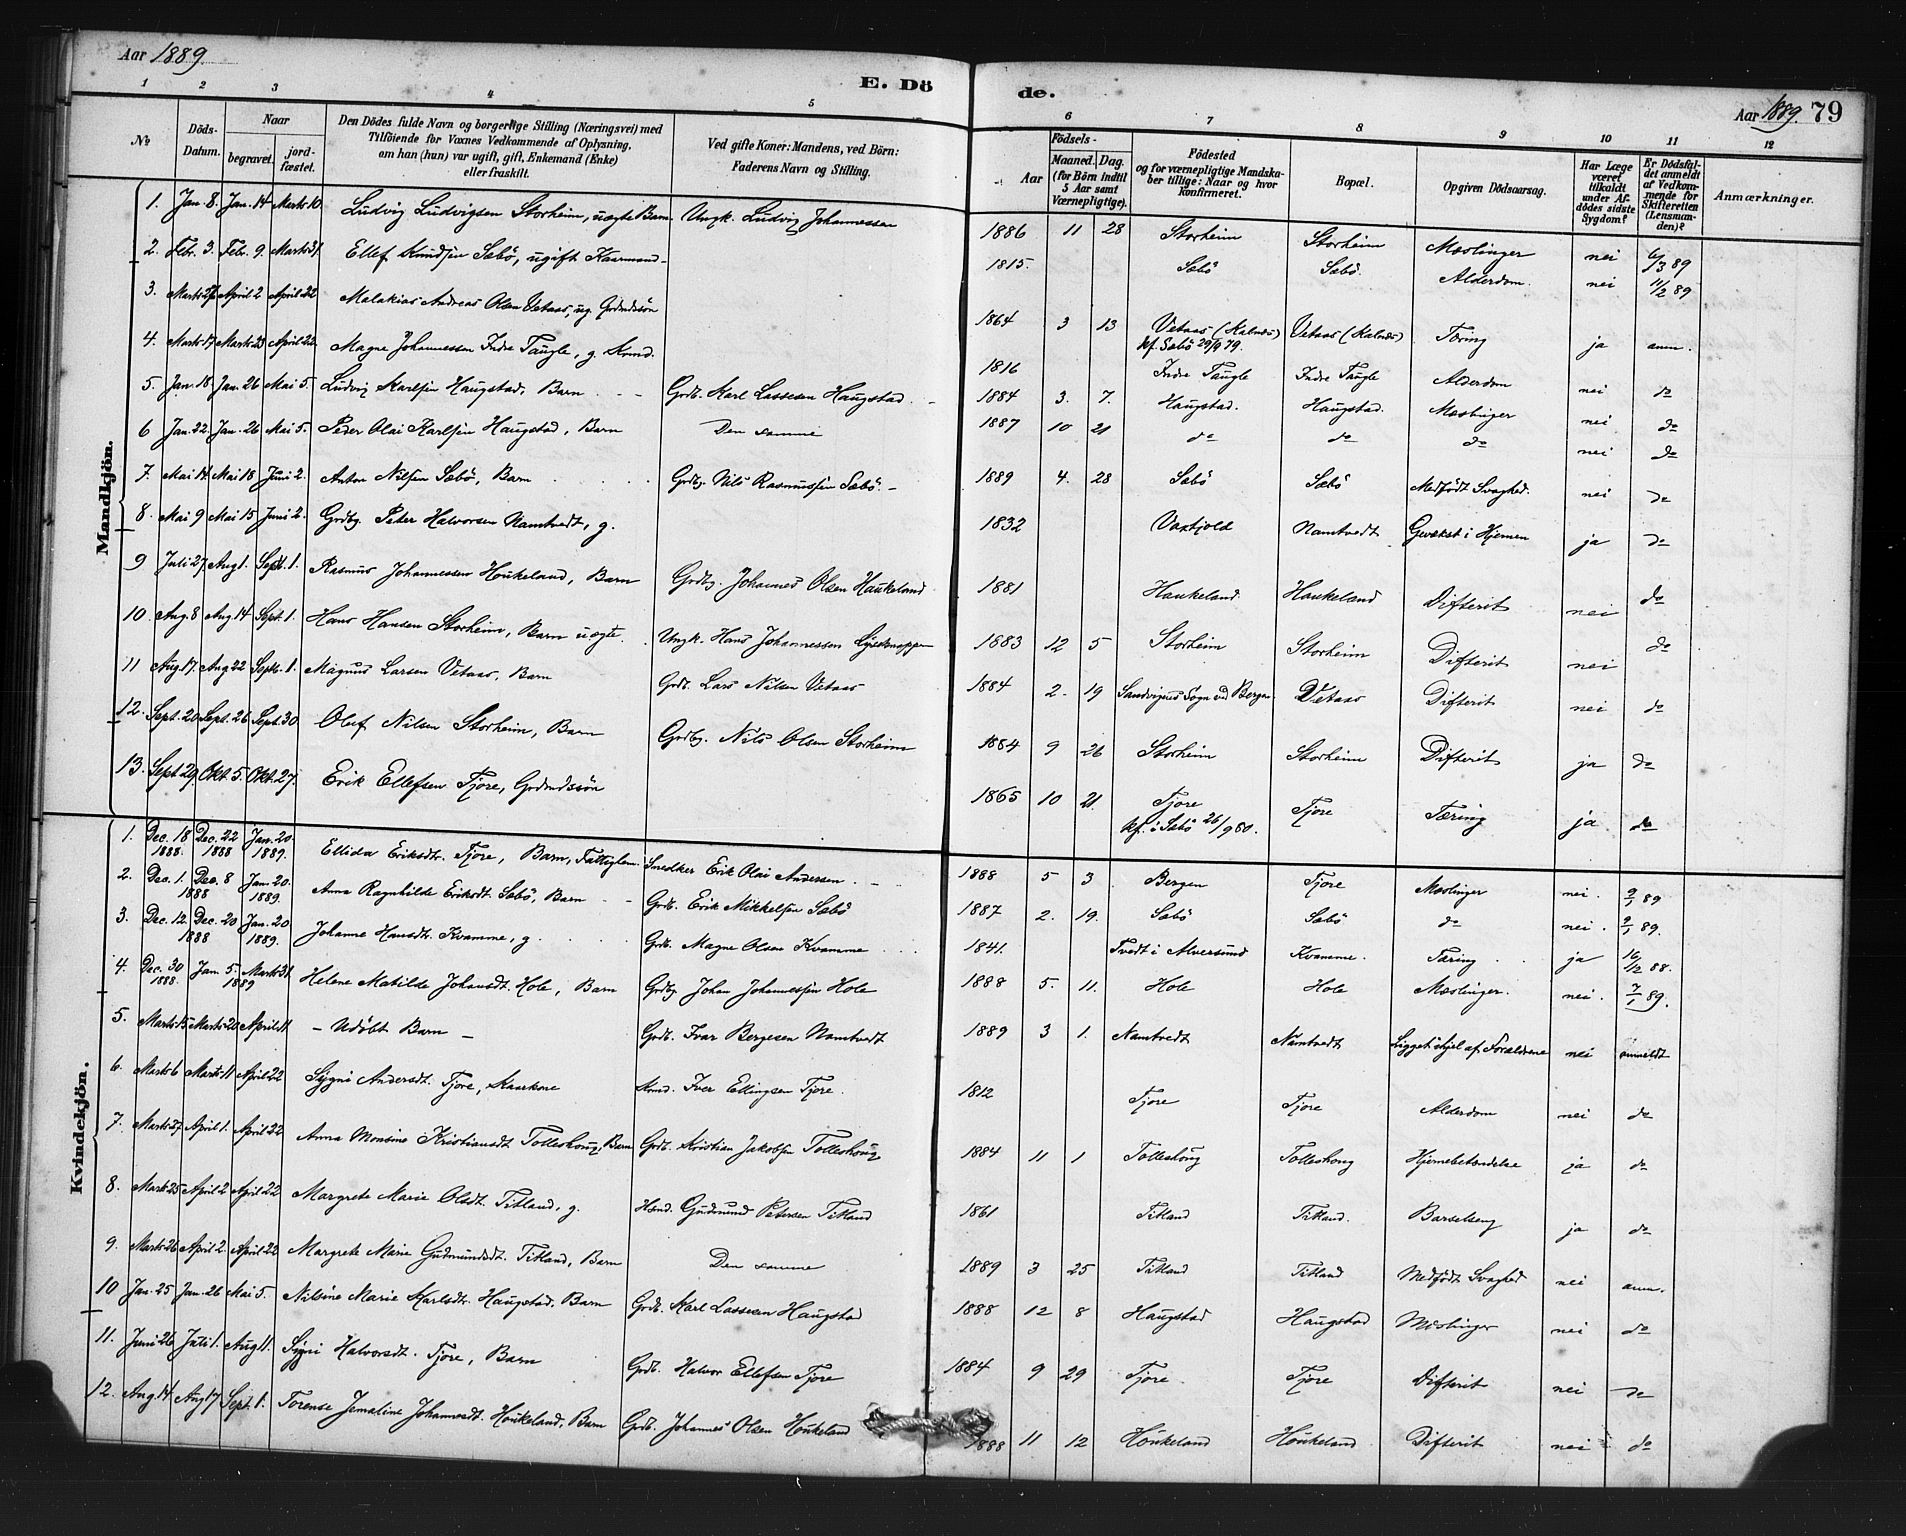 Aar 1889.
E. Dö
de.
Aar 1889. 79
1 2 3 4 5 6 7 8 9 10 11 12
№ | Döds-Datum. | Naar begravet. | jordfæstet. | Den Dödes fulde Navn og borgerlige Stilling (Næringsvei) med Tilföiende for Voxnes Vedkommende af Oplysning, om han (hun) var ugift, gift, Enkemand (Enke) eller fraskilt. | Ved gifte Koner: Mandens, ved Börn: Faderens Navn og Stilling. | Födsels- Aar | Maaned. | Dag. (for Börn indtil 5 Aar samt Værnepligtige). | Födested og for værnepligtige Mandskaber tillige: Naar og hvor konfirmeret. | Bopæl. | Opgiven Dödsaarsag. | Har Læge været tilkaldt under Afdödes sidste Sygdom? | Er Dödsfaldet anmeldt af Vedkommende for Skifteretten (Lensmanden)? | Anmærkninger.
Mandkjön.
1. Jan. 8. Jan. 14 Marts 10 Ludvig Ludvigsen Storheim, uægte Barn Ungk. Ludvig Johannessen 1886 11 28 Storheim Storheim Mæslinger nei 6/3 89
2. Febr. 3. Febr. 9. Marts 31. Ellef Knudsen Sæbö, ugift Kaarmand 1815. Sæbö Sæbö. Alderdom. nei 11/2 89
3. Marts 27 April 2 April 22 Malakias Andreas Olsen Vetaas, ug. Grdmdssön 1864 3 13 Vetaas (Kalnæs) kf. Sæbö 29/9 79. Vetaas (Kalnæs) Tæring ja anm.
4. Marts 17 Marts 23 April 22. Magne Johannessen Indre Taugle, g. 1816 Indre Taugle Indre Taugle Alderdom nei do
5. Jan. 18. Jan. 26 Mai 5. Ludvig Karlsen Haugstad, Barn Grdb. Karl Lassesen Haugstad 1884 3. 7. Haugstad. Haugstad. Mæslinger nei do
6 Jan. 22. Jan. 26 Mai 5. Peder Olai Karlsen Haugstad, Barn Den samme 1887 10 21 do do do nei do
7. Mai 14. Mai 18 Juni 2. Anton Nilsen Sæbö, Barn Grdbg. Nils Rasmussen Sæbö. 1889 4. 28 Sæbö Sæbö Medfödt Svaghed. nei do
8. Mai 9 Mai 15 Juni 2. Grdbg. Peter Halvorsen Namtvedt, g. 1832 Namtvedt Gevækst i Hjernen ja do
9 Juli 27. Aug 1. Sept. 1. Rasmus Johannessen Houkeland, Barn Grdbg. Johannes Olsen Haukeland 1881 Haukeland. Haukeland Difterit nei do
10. Aug. 8 Aug 14 Sept. 1. Hans Hansen Storheim, Barn uægte. Ungk. Hans Johannessen 1883 12 5 Storheim Storheim Difterit nei do
11 Aug. 17. Aug 22 Septb. 1. Magnus Larsen Vetaas, Barn Grdb. Lars Nilsen Vetaas 1884 2. 19 Sandvigens Sogn ved Bergen Vetaas Difterit nei do
12. Sept. 20 Sept. 26 Sept. 30 Oluf Nilsen Storheim, Barn Grdbg. Nils Olsen Storheim 1884 9 26 Storheim Storheim Difterit ja do
13. Sept 29. Okt. 5. Okt. 27. Erik Ellefsen Tjore, Grdmdssön 1865 10 21. Tjore kf. i Sæbö 26/9 80. Tjore Tæring ja do
Kvindekjön.
1. Dec. 18 1888. Dec. 22 1888 Jan. 20 1889. Ellida Eriksdtr. Tjore, Barn, Fattiglem. Snedker Erik Olai Andersen 1888 5 3 Bergen Tjore Mæslinger nei. 9/1 89
2. Dec. 1. Dec. 8 1888 Jan. 20. 1889. Anna Ragnhilde Eriksdt. Sæbö, Barn Grdb. Erik Mikkelsen Sæbö 1887 2. 19. Sæbö Sæbö do nei. 9/1 89.
3. Dec. 12. Dec. 20 1888 Jan. 20 1889. Johanne Hansdtr. Kvamme, g. Grdb. Magne Olsen Kvamme 1841. Tvedt i Alversund Kvamme Tæring ja 16/12 88.
4. Dec. 30 1888. Jan. 5. Marts 31. 1889 Helene Matilde Johansdt. Hole, Barn Grdbg. Johan Johannessen Hole 1888 5. 11. Hole Hole Mæslinger. nei. 7/1 89.
5. Marts 15 Marts 20 April 11. – Udöbt Barn – Grdb. Ivar Bergesen Namtvedt 1889 3 1. Namtvedt Namtvedt Ligget ihjel af Forældrene nei anmeldt
6. Marts 6 Marts 11 April 22 Sygni Andersdt. Tjore, Kaarkone Iver Ellingsen Tjore. 1812 Tjore Tjore Alderdom nei do
7. Marts 27 April 1. April 22 Anna Monsine Kristiansdt. Tolleshoug, Barn Grdb. Kristian Jakobsen Tolleshoug 1884 11 1 Tolleshoug Tolleshoug Hjernebetændelse ja do
8. Marts 25 April 2 April 22 Margrete Marie Olsdt. Titland, g. Hsmd. Gudmund Petersen Titland 1861 Titland Titland. Barselseng ja do
9. Marts 26 April 2. April 22 Margrete Marie Gudmundsdt. Titland, Barn Den samme 1889 3 25 Titland Titland Medfödt Svaghed nei anm.
10 Jan. 25 Jan. 26 Mai 5. Nilsine Marie Karlsdt. Haugstad, Barn Grdb. Karl Lassesen Haugstad 1888 12 8 Haugstad Haugstad Mæslinger nei do
11. Juni 26 Juli 1. Aug 11. Sygni Halvorsdt. Tjore, Barn Grdb. Halvor Ellefsen Tjore 1884 9 29 Tjore. Tjore Difterit nei do
12. Aug. 14 Aug 17 Sept. 1. Torense Jemaline Johannesdt. Houkeland, Barn Grdb. Johannes Olsen Houkeland 1888 11 12 Houkeland Houkeland Difterit nei do